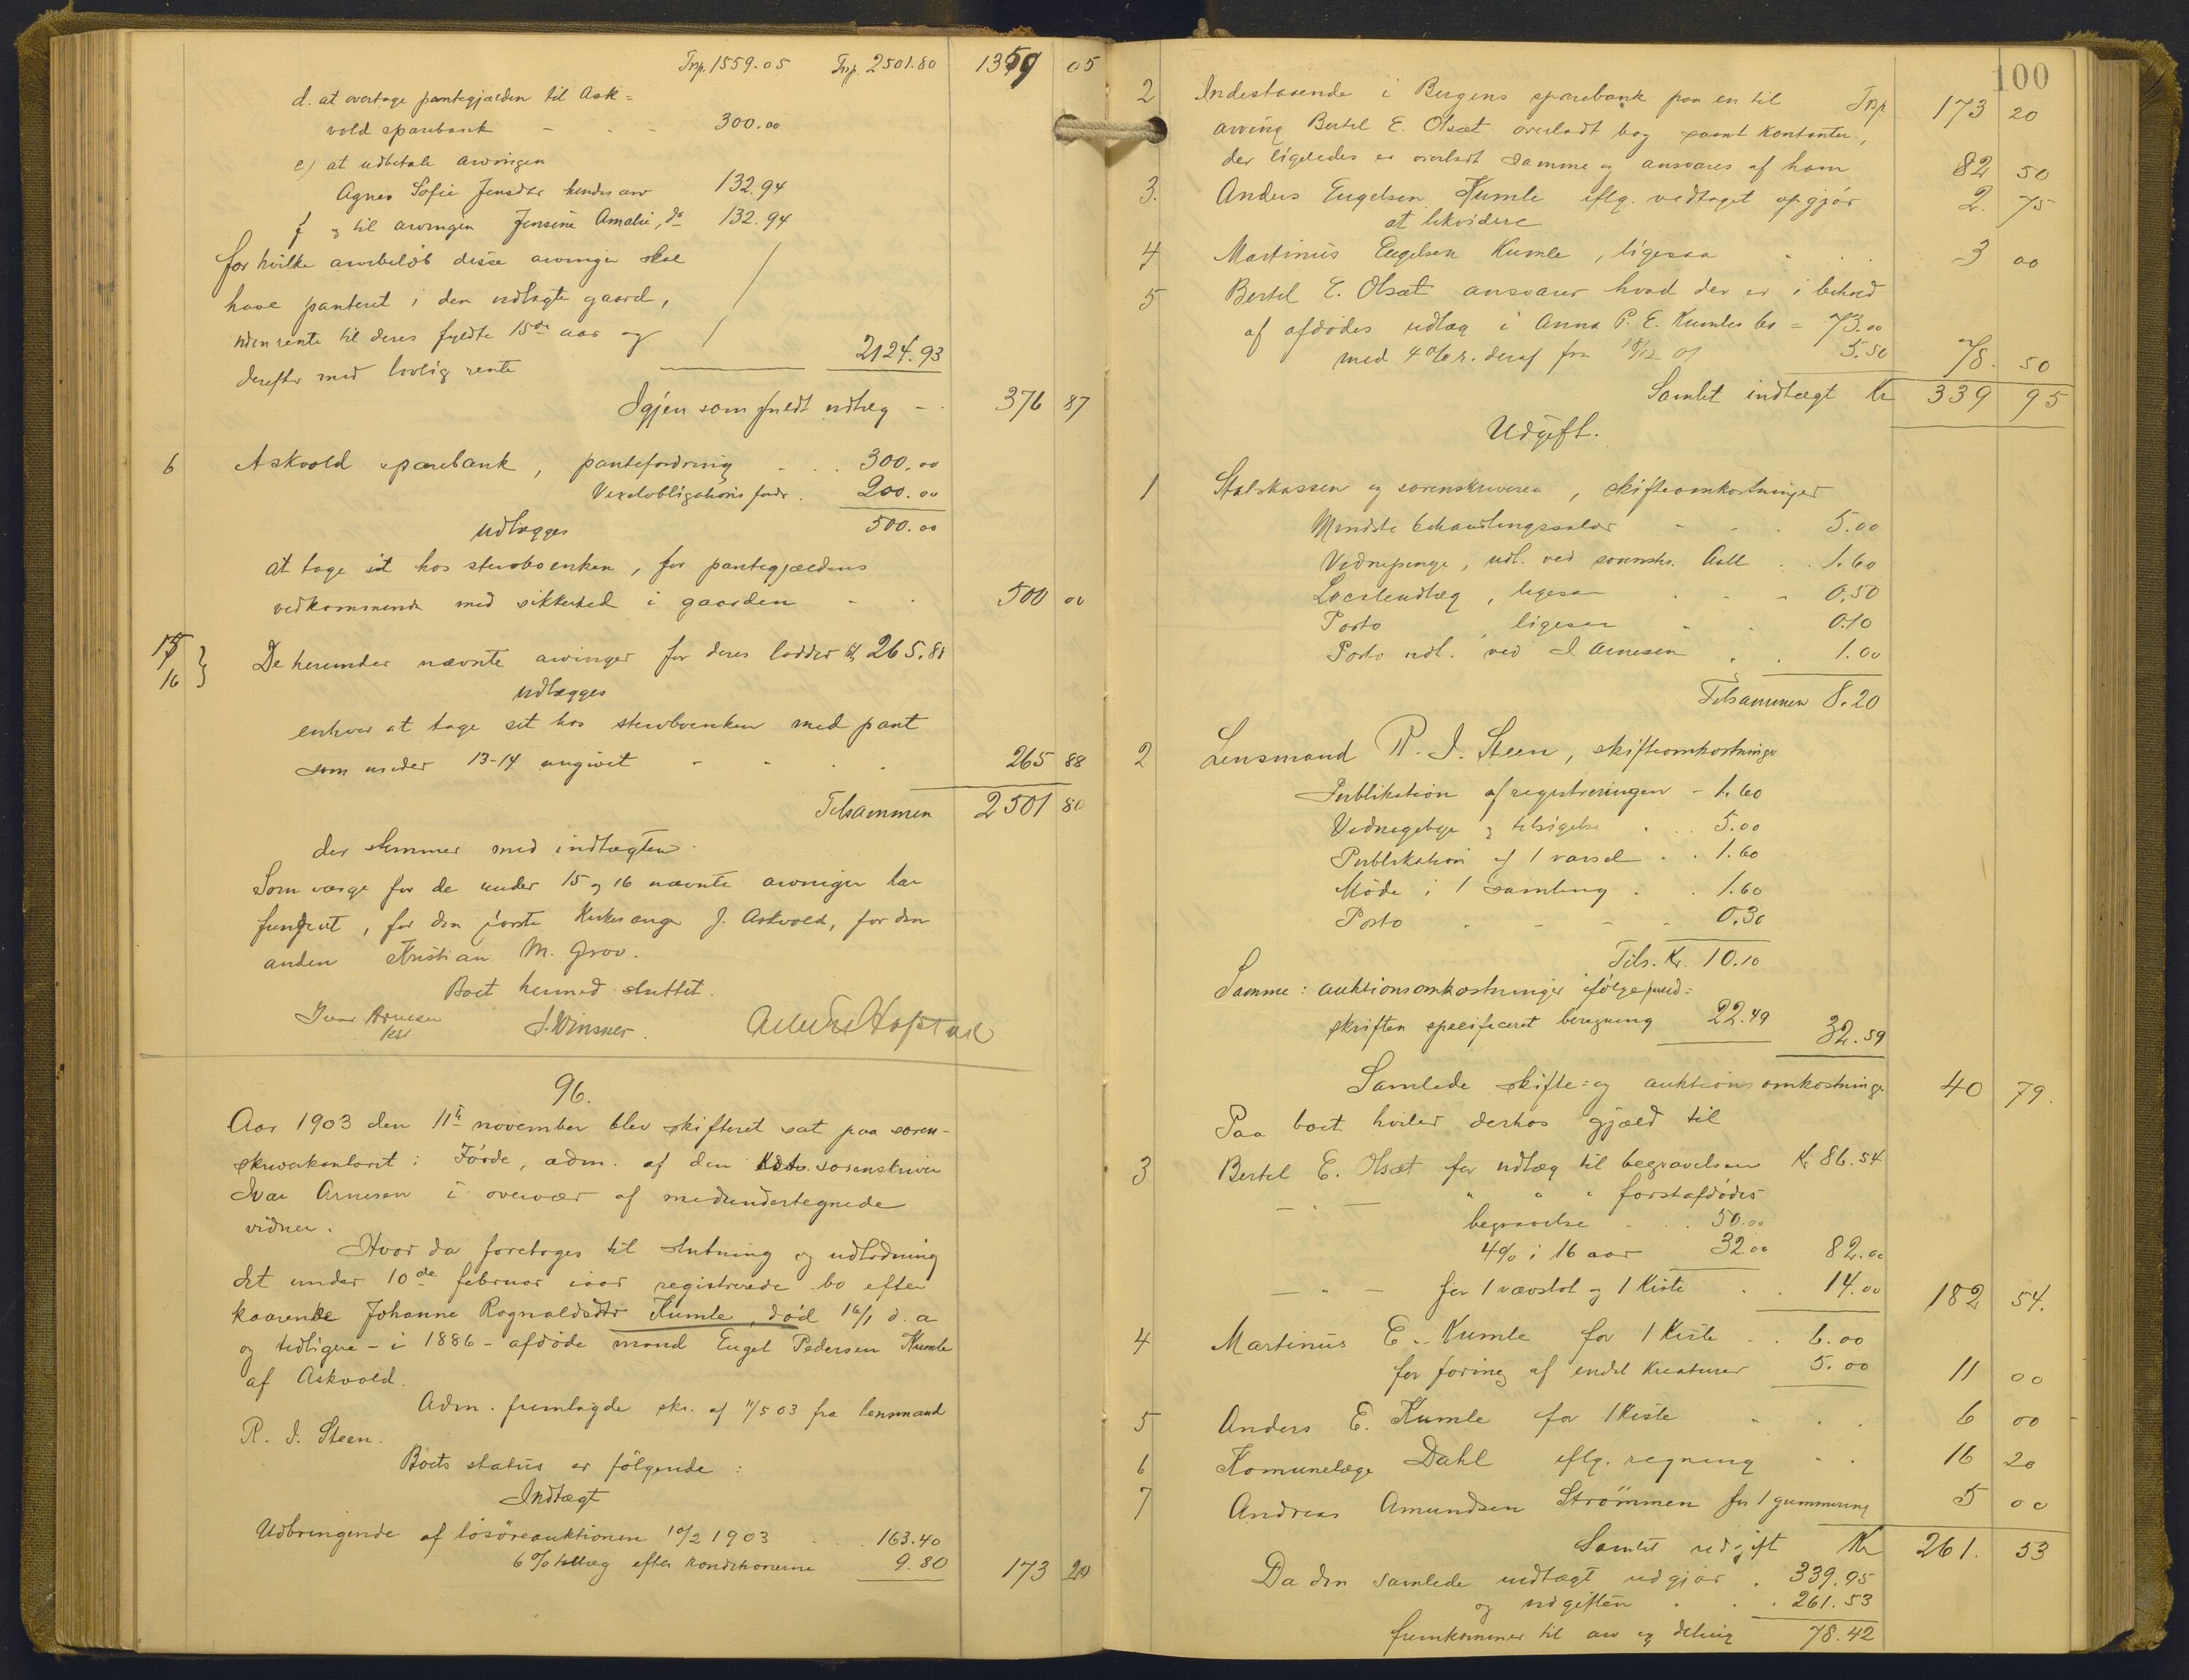 Trsp. 1559.05 Trsp. 2501.80 1359 05
d. at overtage pantegjælden til Ask=
vold sparebank - - - 300.00
e) at udbetale arvingen
Agnes Sofie Jensdtr hendes arv 132.94
f og til arvingen Jensine Amalie, do 132.94
for hvilke arvebeløb disse arvinger skal
have panteret i den udlagte gaard,
uden rente til deres fyldte 15de aar og
derefter med lovlig rente 2124.93
Igjen som fuldt udlæg - - 376 87
6 Askvold sparebank, pantefordring - . . 300.00
Vexelobligations fordr. 200.00
udlægges 500.00
at tage sit hos sterboenken, for pantegjældens
vedkommende med sikkerhed i gaarden - - 500 00
15
16 } De herunder nævnte arvinger for deres lodder til 265.88
udlægges
enhver at tage sit hos sterboenken med pant
som under 13-14 angivet - - - - 265 88
Tilsammen 2501 80
der stemmer med indtægten.
Som værge for de under 15 og 16 nævnte arvinger har
fungeret, for den første Kirkesanger J. Askvold, for den
anden Kristian M. Grov.
Boet hermed sluttet.
Ivar Arnesen J. Winsner.
kst.
96.
Aar 1903 den 11te november blev skifteret sat paa soren-
skriverkontoret i Førde, adm. af den Kst. sorenskriver
Ivar Arnesen i overvær af medundertegnede
vidner.
Hvor da foretoges til slutning og udlodning
det under 10de februar iaar registrerede bo efter
kaarenke Johanne Ragnaldsdtr Kumle, død 16/1 d. a
og tidligere - i 1886 - afdøde mand Engel Pedersen Kumle
af Askvold.
Adm. fremlagde skr. af 11/5 03 fra lensmand
R. J. Steen.
Boets status er følgende:
Indtægt
Udbringende af løsøreauktionen 10/2 1903 . . 163.40
6% tillæg efter konditionerne 9.80 173 20
100
Trsp 173 20
2 Indestaaende i Bergens sparebank paa en til
arving Bertel E. Olsæt overladt bog samt Kontanter,
der ligeledes er overladt samme og ansvares af ham 82 50
3. Anders Engelsen Kumle eflg. vedtaget opgjør 2. 75
at likvidere
4 Martinus Engelsen Kumle, ligesaa - . . 3 00
5 Bertel E. Olsæt ansvarer hvad der er i behold
af afdødes udlæg i Anna P. E. Kumles bo = 73.00
med 4% r. deraf fra 18/12 01 5.50 78. 50
Samlet indtægt Kr 339 95
Udgift.
1 Statskassen og sorenskriveren, skifteomkostninger
Mindste behandlingssalær - - . 5.00
Vidnepenge, udl. ved sorenskr. Aall . . 1.60
Localeudlæg, ligesaa . . - 0.50
Porto , ligesaa - . 0.10
Porto udl. ved I Arnesen . . 1.00
Tilsammen 8.20
2 Lensmand R. J. Steen, skifteomkostninger
Publikation af registreringen - 1.60
Vidnegebyr og tilsigelse . . . 5.00
Publikation af 1 varsel . . 1.60
Møde i 1 samling . . 1.60
Porto . - - - 0.30
Tils. Kr. 10.10
Samme: auktionsomkostninger ifølge paaud=
skriften specificeret beregning 22.49 32.59
Samlede skifte= og auktionsomkostninger 40 79.
Paa boet hviler derhos gjæld til
3 Bertel E. Olsæt for udlæg til begravelsen Kr 86.54
— " — " " " førstafdødes
begravelse . . . 50.00
4% i 16 aar 32.00 82.00
— " — for 1 vævstol og 1 Kiste . . 14.00 182 54.
4 Martinus E. Kumle for 1 Kiste - . 6.00
for foring af endel Kreaturer 5.00 11 00
5 Anders E. Kumle for 1 Kiste - . . 6 00
6 Komunelæge Dahl eflg. regning - . 16 20
7 Andreas Amundsen Strømmen for 1 gummering 5 00
Samlet udgift Kr 261. 53
Da den samlede indtægt udgjør . 339.95
og udgiften . . . 261.53
fremkommer til arv og deling 78.42